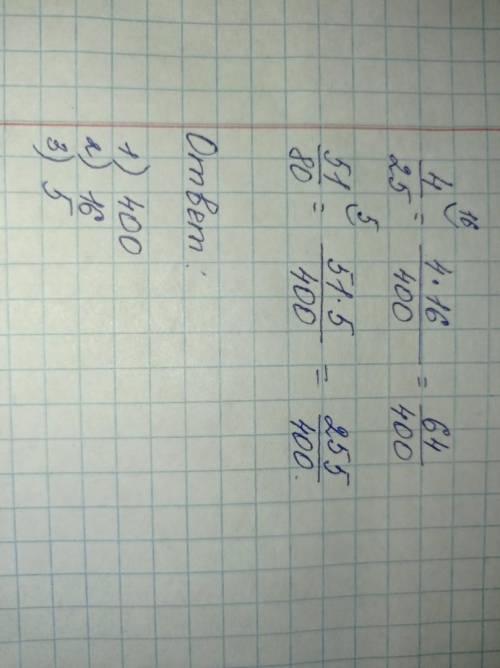 4/25 ⁽¹⁶ = 4·16/400 = 64/400
51/80 ⁽⁵ = 51·5/400 = 255/400.
Ответ:
1) 400
2) 16
3) 5